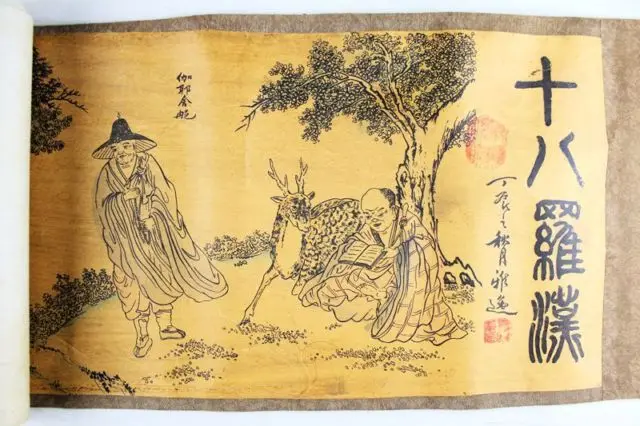 十八羅漢
丁辰之秋月雅
伽耶舍